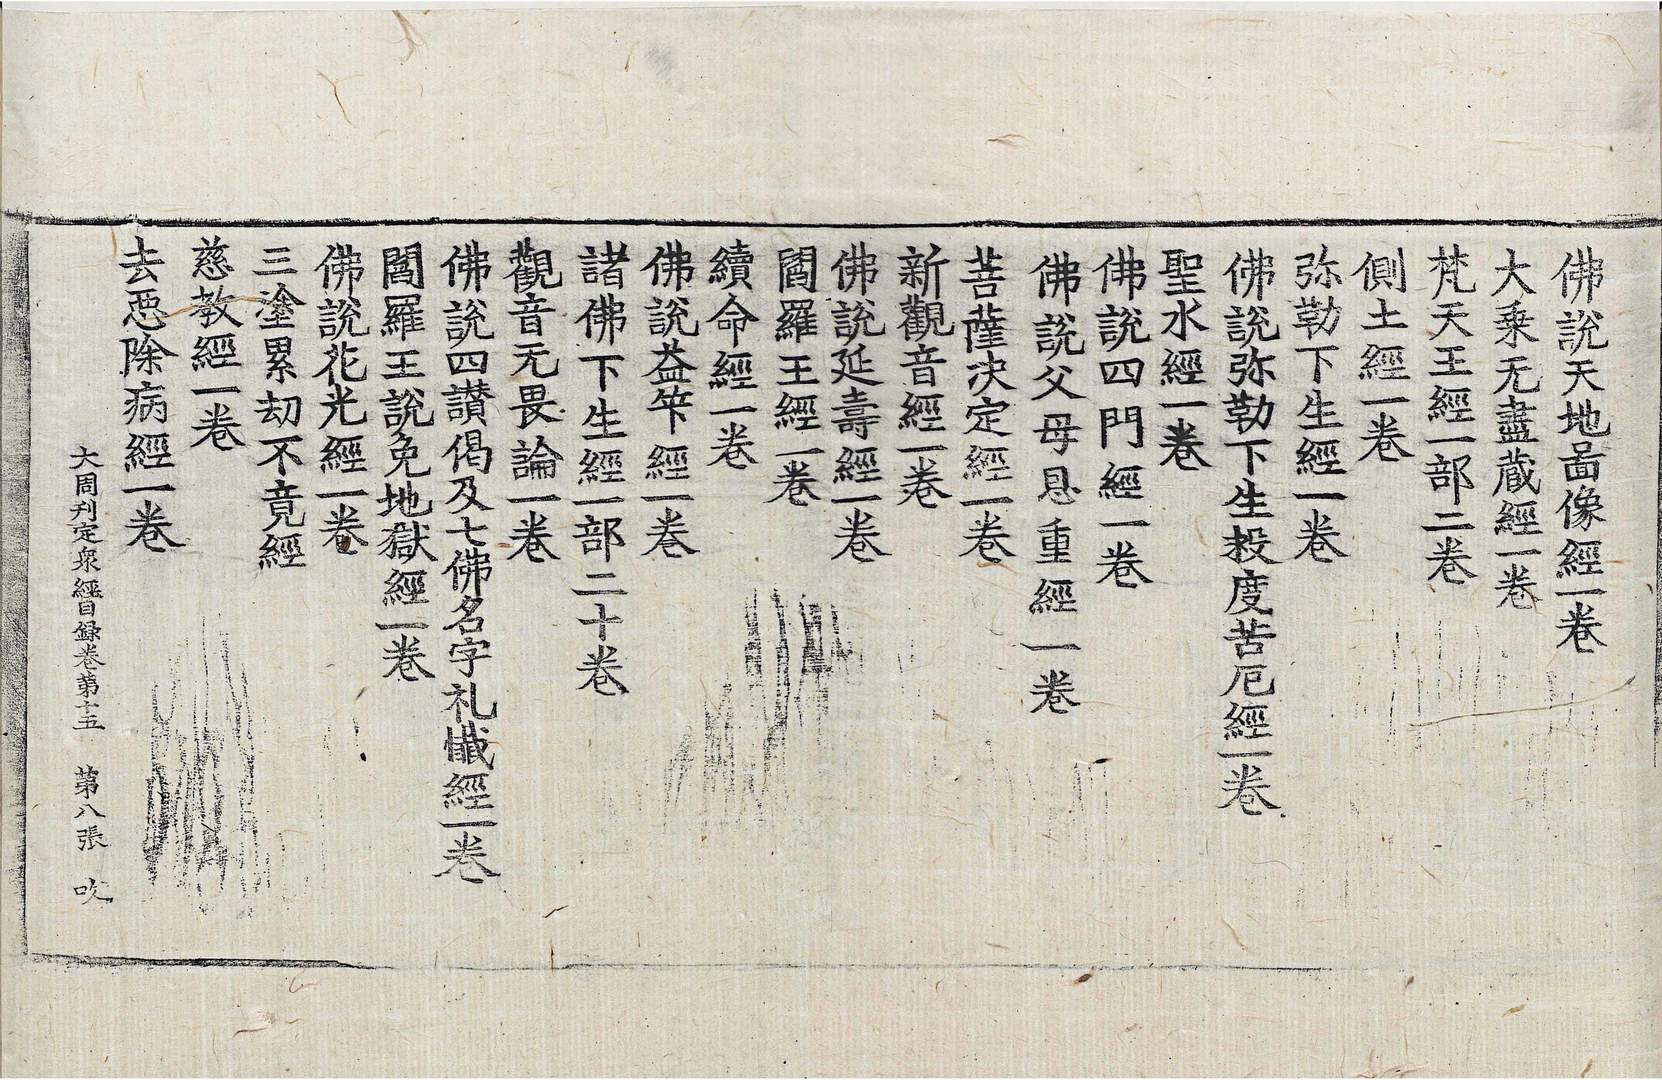 佛說天地啚像經一卷
大乗无盡蔵經一卷
梵天王經一部二卷
側土經一卷
弥勒下生經一卷
佛說弥勒下生投度苦厄經一卷
聖水經一卷
佛說四門經一卷
佛說父母恩重經一卷
菩薩决定經一卷
新觀音經一卷
佛說延壽經一卷
閻羅王經一卷
續命經一卷
佛說益笇經一卷
諸佛下生經一部二十卷
觀音无畏論一卷
佛說四讃偈及七佛名字礼懺經一卷
閻羅王說免地獄經一卷
佛說花光經一卷
三塗累劫不竟經
慈教經一卷
去惡除病經一卷
大周刊定衆經目録卷第十五 第八張 吹